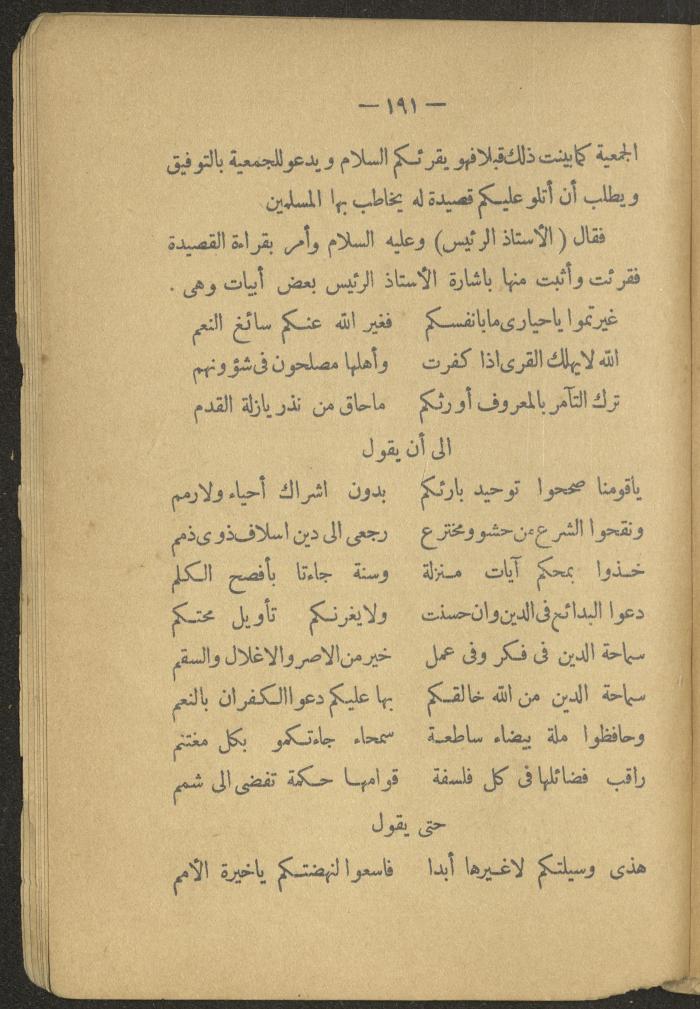 — ١٩١ —
الجمعية كما بينت ذلك قبلا فهو يقرئكم السلام ويدعو للجمعية بالتوفيق
ويطلب أن أتلو عليكم قصيدة له يخاطب بها المسلمين
فقال ( الأستاذ الرئيس ) وعليه السلام وأمر بقراءة القصيدة
فقرئت وأثبت منها باشارة الأستاذ الرئيس بعض أبيات وهى .
غيرتموا ياحيارى مابانفسكم فغير الله عنكم سائغ النعم
الله لايهلك القرى اذا كفرت وأهلها مصلحون فى شؤونهم
ترك التآمر بالمعروف أورثكم ماحاق من نذر يازلة القدم
الى أن يقول
ياقومنا صححوا توحيد بارئكم بدون اشراك أحياء ولارمم
ونقحوا الشرع من حشو ومخترع رجعى الى دين اسلاف ذوى ذمم
خذوا بمحكم آيات منزلة وسنة جاءتا بأفصح الكلم
دعوا البدائع فى الدين وان حسنت ولايغرنكم تأويل محتكم
سماحة الدين فى فكر وفى عمل خير من الاصر والاغلال والسقم
سماحة الدين من الله خالقكم بها عليكم دعوا الكفران بالنعم
وحافظوا ملة بيضاء ساطعة سمحاء جاءتكمو بكل مغتنم
راقب فضائلها فى كل فلسفة قوامها حكمة تفضى الى شمم
حتى يقول
هذى وسيلتكم لاغيرها أبدا فاسعوا لنهضتكم ياخيرة الأمم